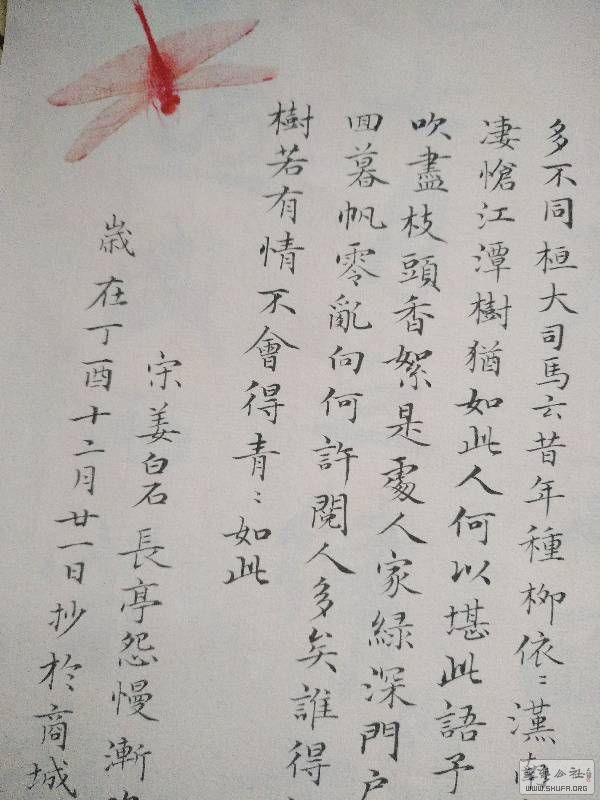 多不同桓大司馬云昔年種柳依〻漢南
淒愴江潭樹猶如此人何以堪此語予
吹盡枝頭香絮是處人家綠深門户
回暮帆零亂向何許閱人多矣誰得
樹若有情不會得青〻如此
宋姜白石長亭怨慢漸
歲在丁酉十二月廿一日抄於商城
書法公社
WWW.SHUFA.ORG